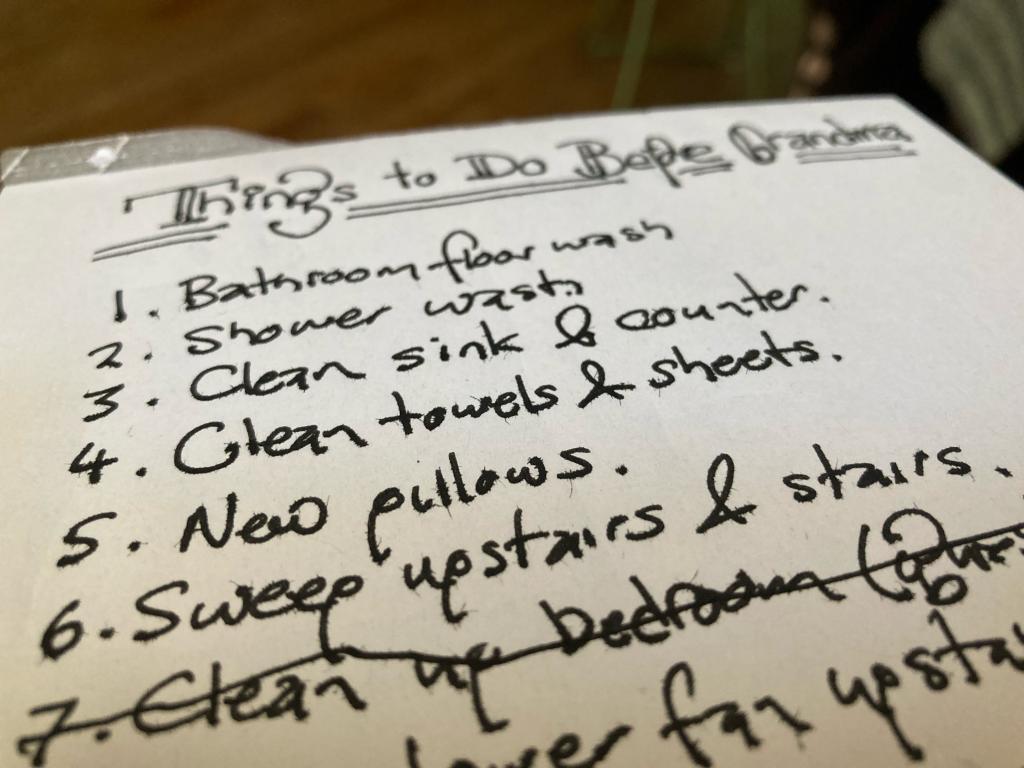 Things to Do Before Grandma
1. Bathroom floor wash
2. Shower wash
3. Clean sink & counter.
4. Clean towels & sheets.
5. New pillows.
6. Sweep upstairs & stairs.
7. Clean up bedroom
fan